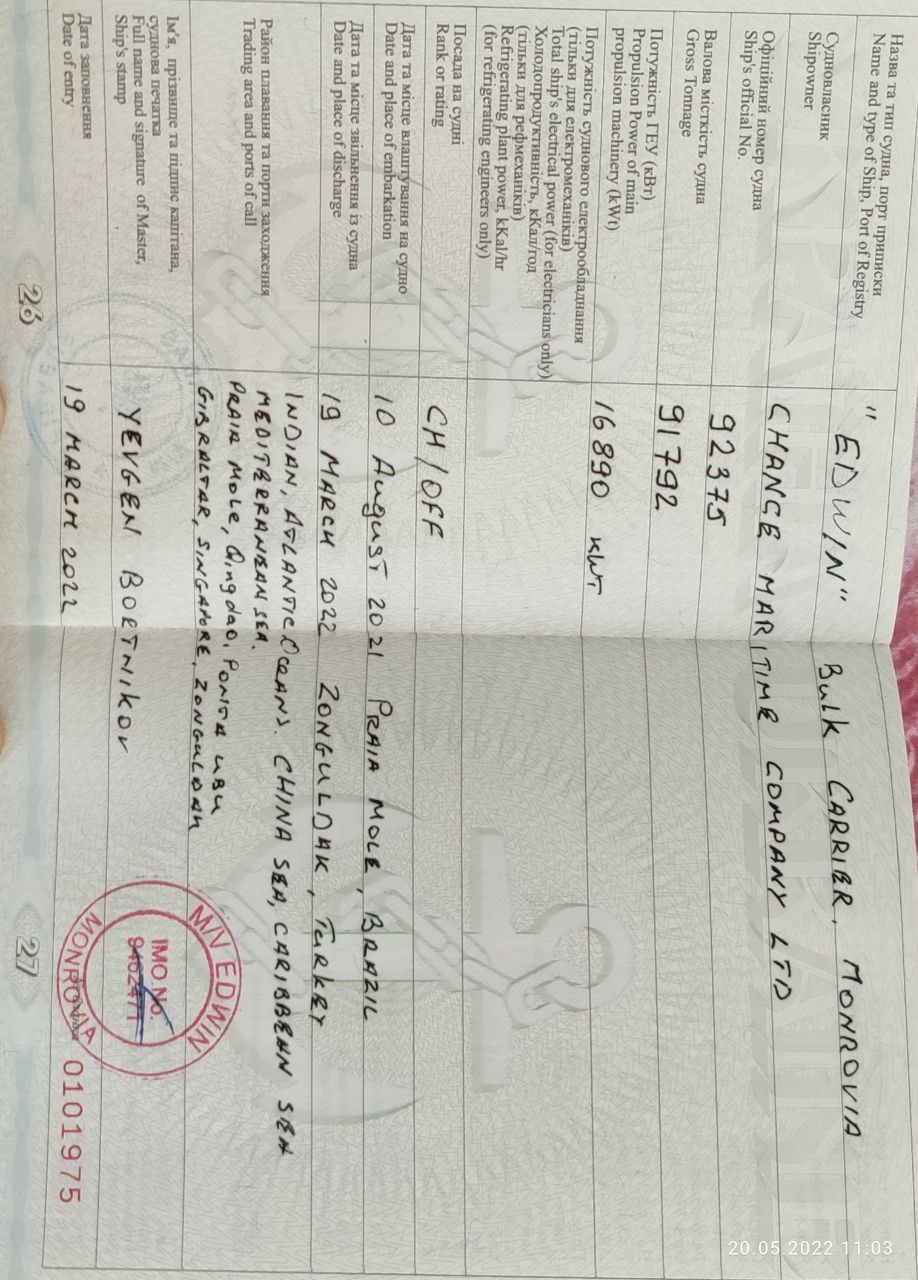 Назва та тип судна, порт приписки
Name and type of Ship, Port of Registry
"EDWIN" Bulk CARRIER, MONROVIA
Судновласник
Shipowner
CHANGE MARITIME COMPANY LTD
Офіційний номер судна
Ship's official No.
92375
Валова місткість судна
Gross Tonnage
91792
Потужність ГЕУ (кВт)
Propulsion Power of main
propulsion machinery (kWt)
16890 kWT
Потужність суднового електрообладнання
(тільки для електромеханіків)
Total ship's electrical power (for electricians only)
Холодопродуктивність, кКал/год
(тільки для рефмеханіків)
Refrigerating plant power, kKal/hr
(for refrigerating engineers only)
Посада на судні
Rank or rating
CH/OFF
Дата та місце влаштування на судно
Date and place of embarkation
10 August 2021 PRAIA MOLE, BRAZIL
Дата та місце звільнення із судна
Date and place of discharge
19 MARCH 2022 ZONGULDAK, TURKEY
Район плавання та порти заходження
Trading area and ports of call
INDIAN, ATLANTIC Oceans. CHINA SEA, CARIBBEAN SEA
MEDITERRANEAN SEA.
PRAIA MOLE, Qingdao, PONTA UBU
GIBRALTAR, SINGAPORE, ZONGULDAK
Ім'я, прізвище та підпис капітана,
суднова печатка
Full name and signature of Master,
Ship's stamp
YEVGEN BORTNIKOV
M/V EDWIN
IMO.No.
9462471
MONROVIA
Дата заповнення
Date of entry
19 MARCH 2022
0101975
26
27
20.05.2022 11:03